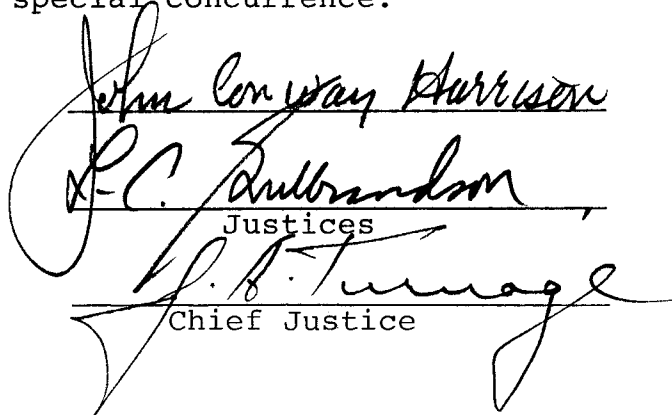 special concurrence.
John Conway Harrison
L. C. Gulbrandson
Justices
J. A. Turnage
Chief Justice